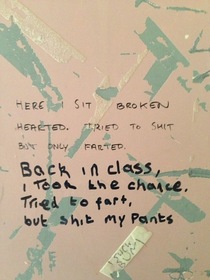 HERE I SIT BROKEN
HEARTED. TRIED TO SHIT
BUT ONLY FARTED.
Back in class,
i took the chance.
Tried to fart,
but shit my pants